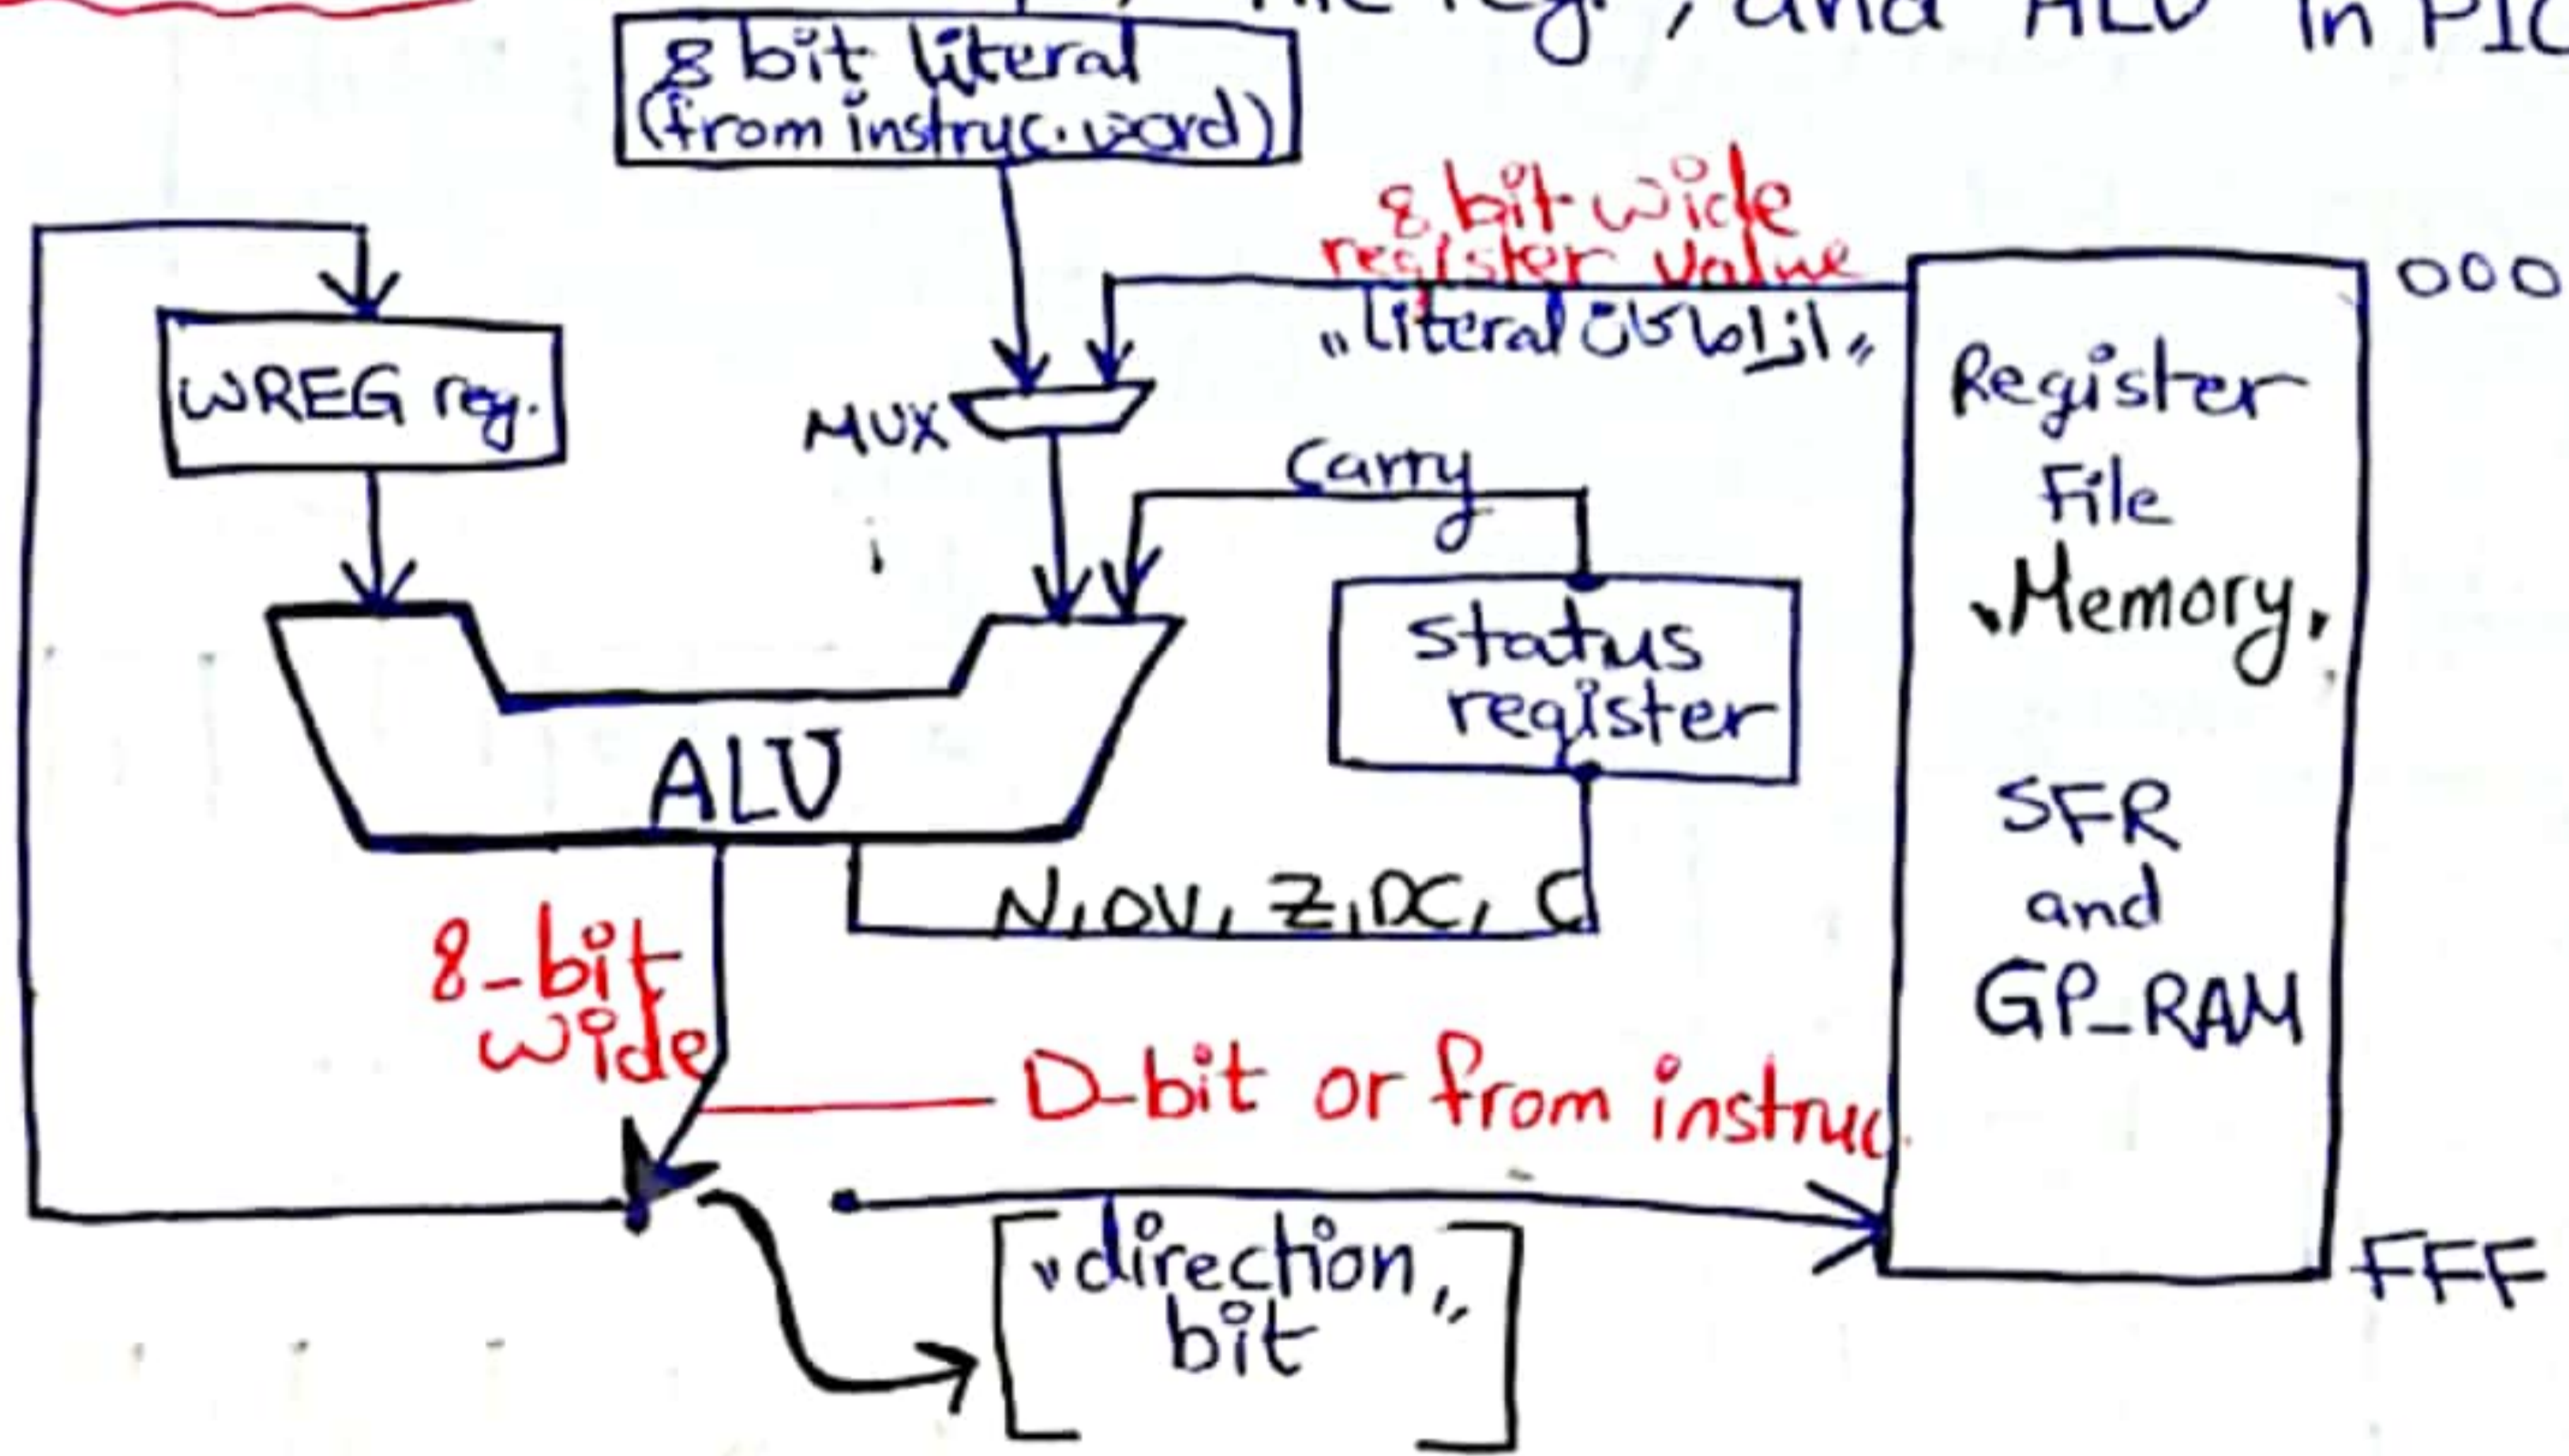 reg., and ALU in PIC
8 bit literal
(from instruc. word)
8 bit wide
register value
"literal اذا ما كان"
000
WREG reg.
MUX
Carry
Register
File
"Memory"
status
register
ALU
SFR
and
GP_RAM
N, OV, Z, DC, C
8-bit
wide
D-bit or from instruc.
"direction
bit"
FFF